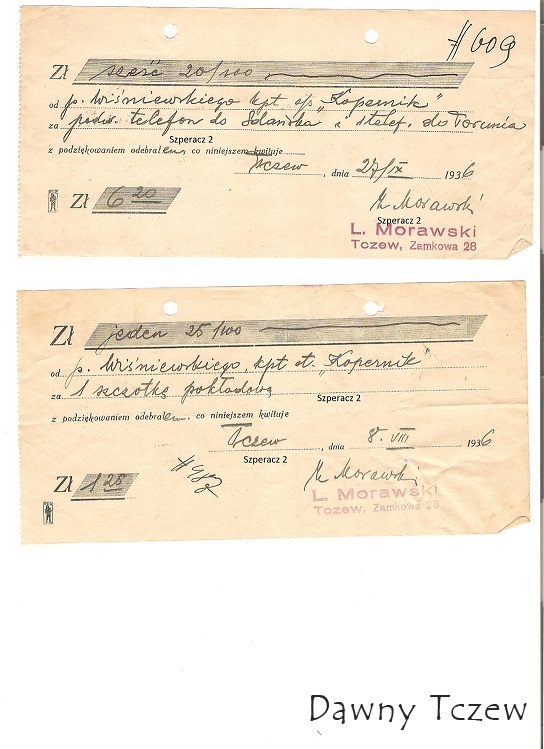 # 609
Zł sześć 20/100
od p. Wiśniewskiego kpt s/s „Kopernik”
za podw. telefon do Gdańska i 1 telef. do Torunia
Szperacz 2
z podziękowaniem odebrałem, co niniejszem kwituje
Tczew, dnia 27/IX 1936
Zł 6 20
Morawski
Szperacz 2
L. Morawski
Tczew, Zamkowa 28
Zł jeden 25/100
od p. Wiśniewskiego, kpt st. „Kopernik”
za 1 szczotkę pokładową
Szperacz 2
z podziękowaniem odebrałem, co niniejszem kwituje
Tczew, dnia 8. VIII 1936
Szperacz 2
Zł 1 25
Morawski
L. Morawski
Tczew, Zamkowa 28
Dawny Tczew